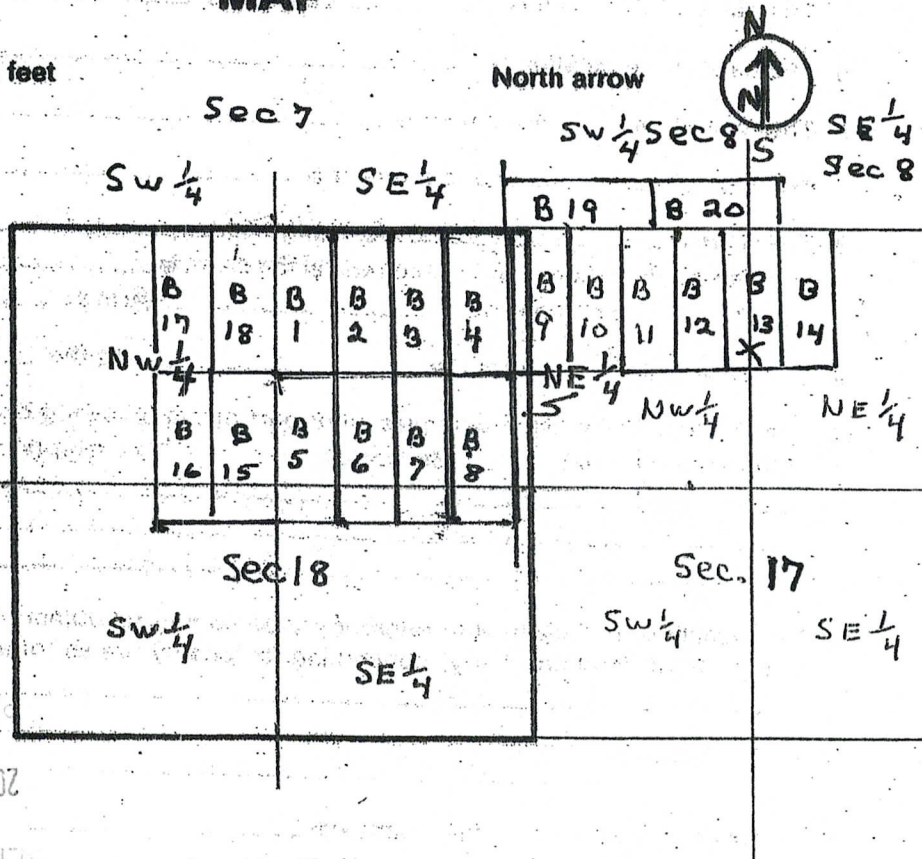 MAP
feet
North arrow
N
N
S
Sec 7
SW 1/4 Sec 8
SE 1/4
Sec 8
SW 1/4
SE 1/4
B 19
B 20
B 17
B 18
B 1
B 2
B 3
B 4
B 9
B 10
B 11
B 12
B 13
X
B 14
NW 1/4
NE 1/4
NW 1/4
NE 1/4
B 16
B 15
B 5
B 6
B 7
B 8
Sec 18
Sec. 17
SW 1/4
SE 1/4
SW 1/4
SE 1/4